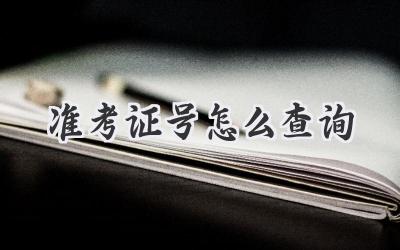 准考证号怎么查询